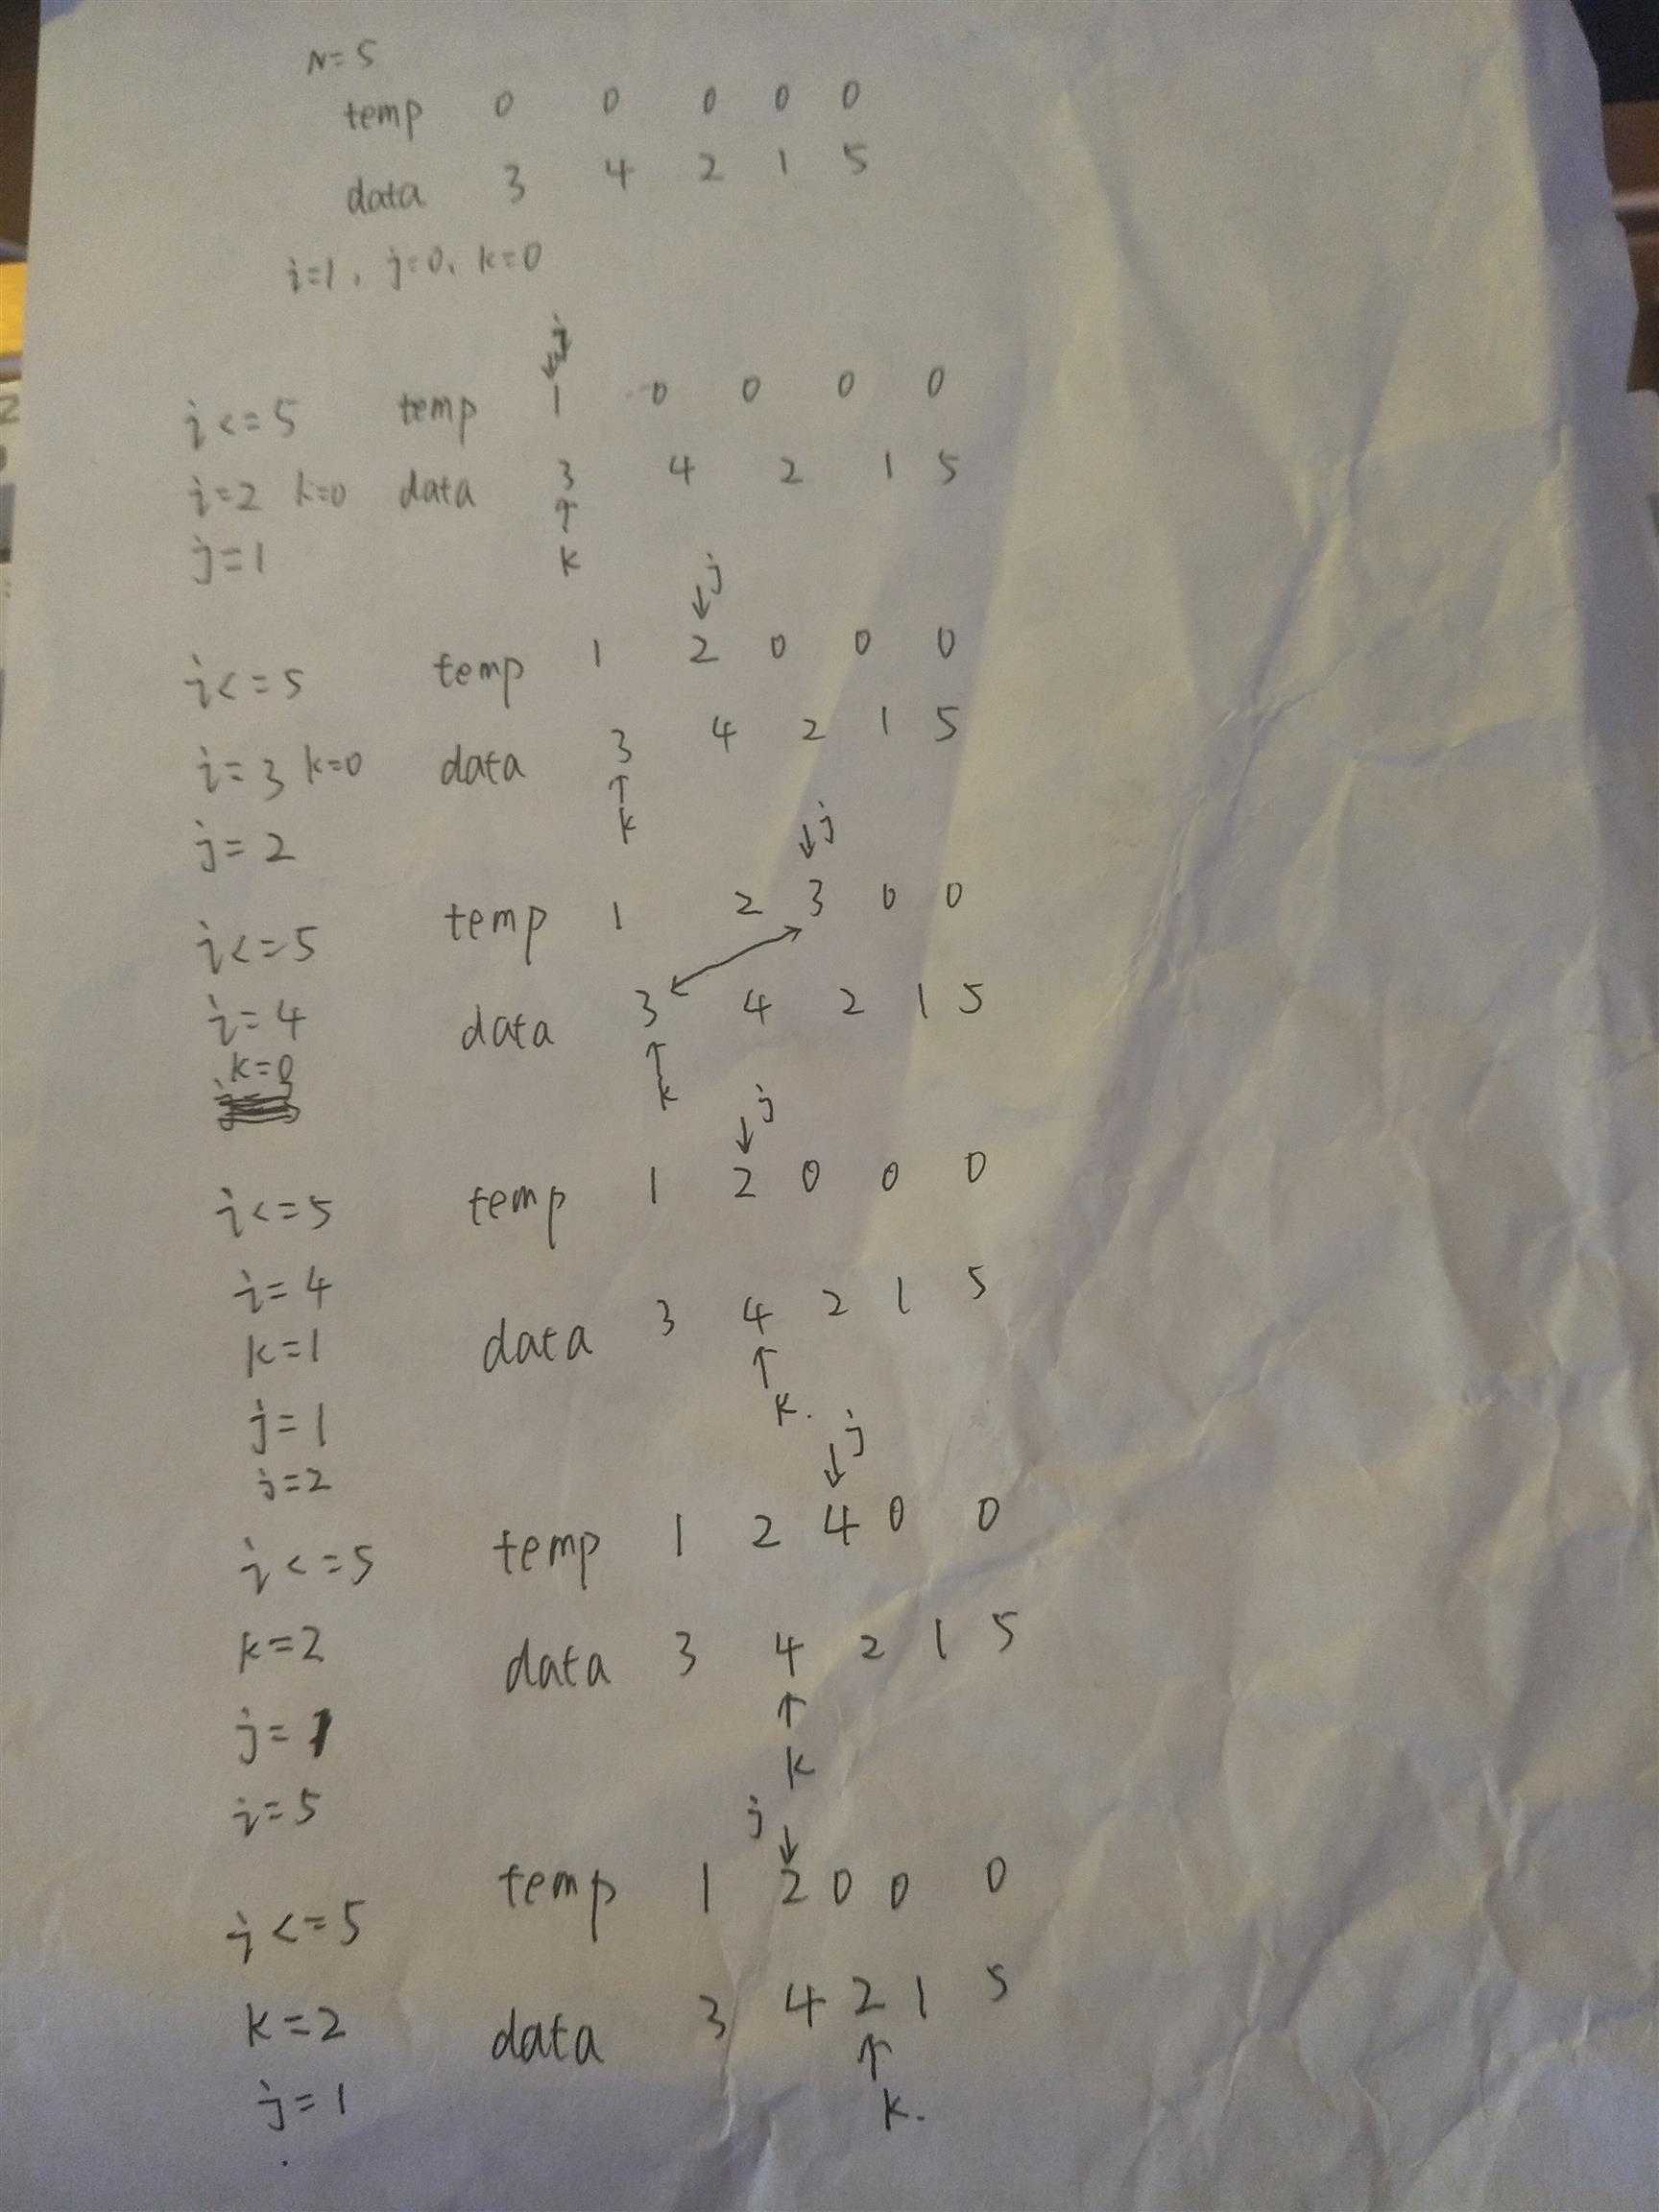 N=5
temp 0 0 0 0 0
data 3 4 2 1 5
i=1, j=0, k=0
j
i<=5 temp 1 0 0 0 0
i=2 k=0 data 3 4 2 1 5
j=1 k
j
i<=5 temp 1 2 0 0 0
i=3 k=0 data 3 4 2 1 5
j=2 k
j
i<=5 temp 1 2 3 0 0
i=4 data 3 4 2 1 5
k=0
k
j
i<=5 temp 1 2 0 0 0
i=4
k=1 data 3 4 2 1 5
k.
j=1
j
j=2
i<=5 temp 1 2 4 0 0
k=2 data 3 4 2 1 5
j=1
k
i=5
j
i<=5 temp 1 2 0 0 0
k=2 data 3 4 2 1 5
j=1 k.